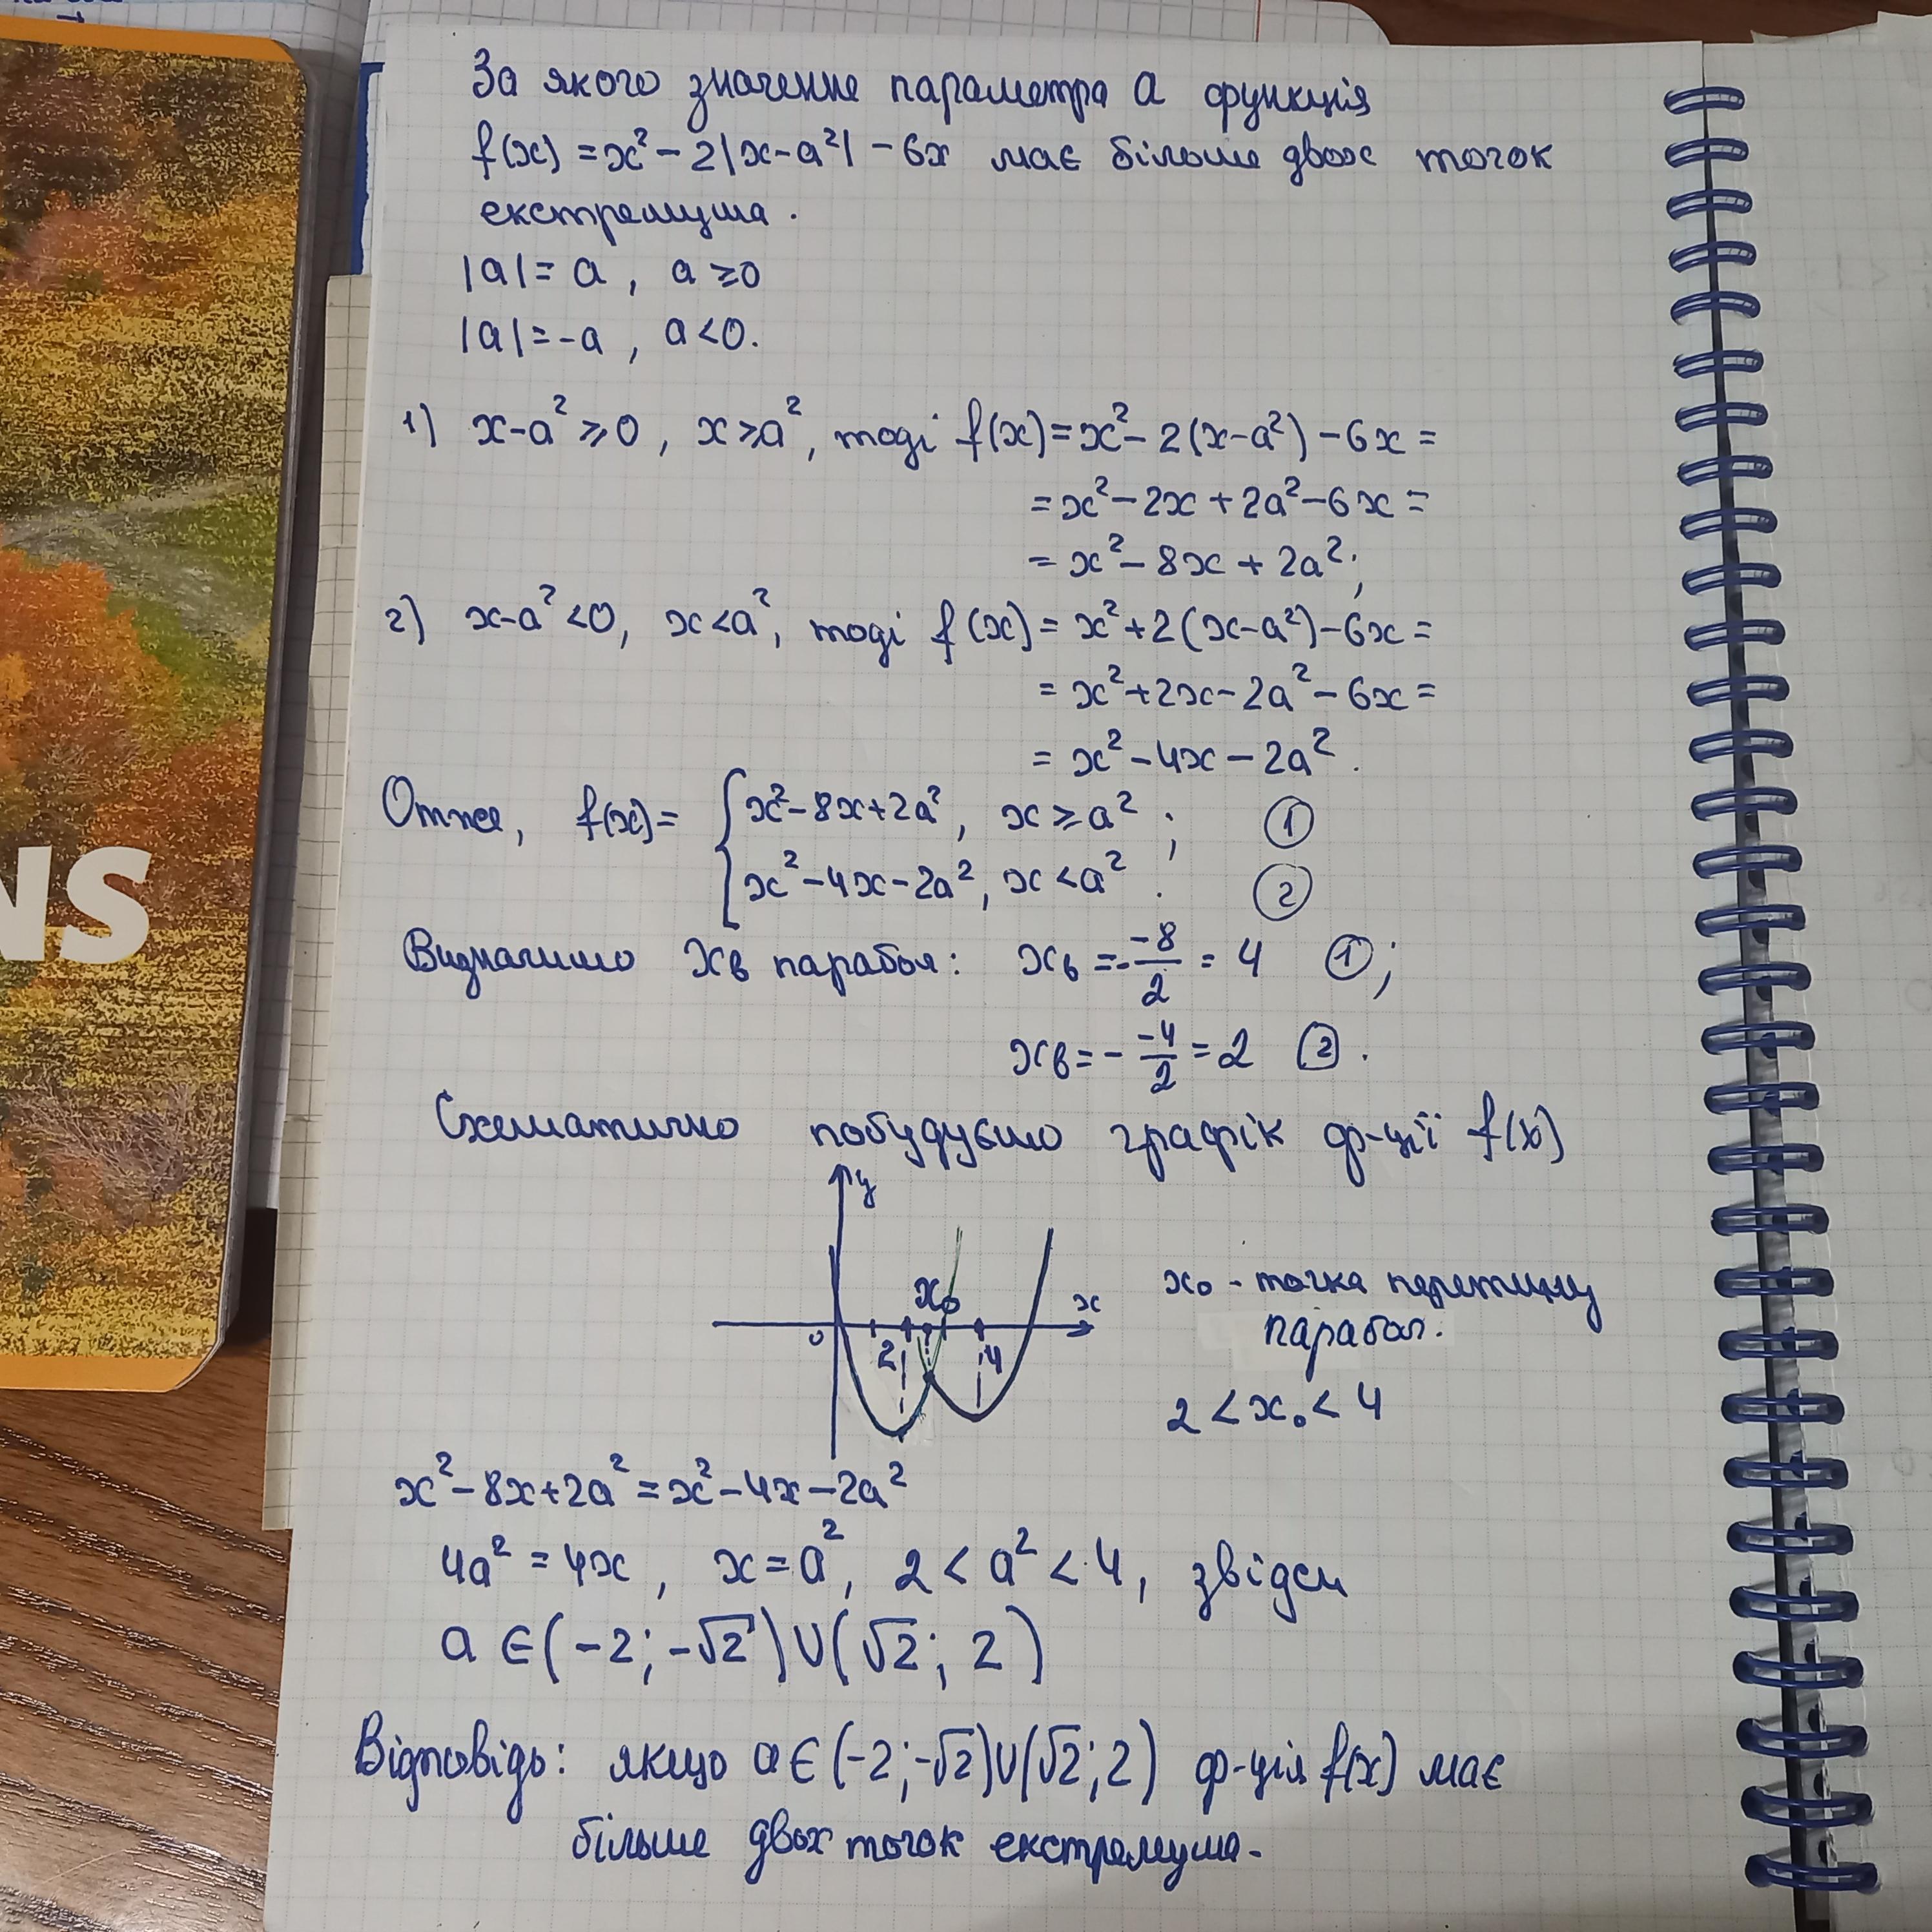 За якого значення параметра a функція
f(x) = x² - 2|x - a²| - 6x має більше двох точок
екстремума.
|a| = a, a ≥ 0
|a| = -a, a < 0.
1) x - a² ≥ 0, x ≥ a², тоді f(x) = x² - 2(x - a²) - 6x =
= x² - 2x + 2a² - 6x =
= x² - 8x + 2a²;
2) x - a² < 0, x < a², тоді f(x) = x² + 2(x - a²) - 6x =
= x² + 2x - 2a² - 6x =
= x² - 4x - 2a².
Отже, f(x) = { x² - 8x + 2a², x ≥ a²; ①
x² - 4x - 2a², x < a². ②
Визначимо xв парабол: xв = - -8/2 = 4 ①;
xв = - -4/2 = 2 ②.
Схематично побудуємо графік ф-ції f(x)
y
x₀ x
0 2 4
x₀ - точка перетину
парабол.
2 < x₀ < 4
x² - 8x + 2a² = x² - 4x - 2a²
4a² = 4x, x = a², 2 < a² < 4, звідси
a ∈ (-2; -√2) ∪ (√2; 2)
Відповідь: якщо a ∈ (-2; -√2) ∪ (√2; 2) ф-ція f(x) має
більше двох точок екстремума.
NS